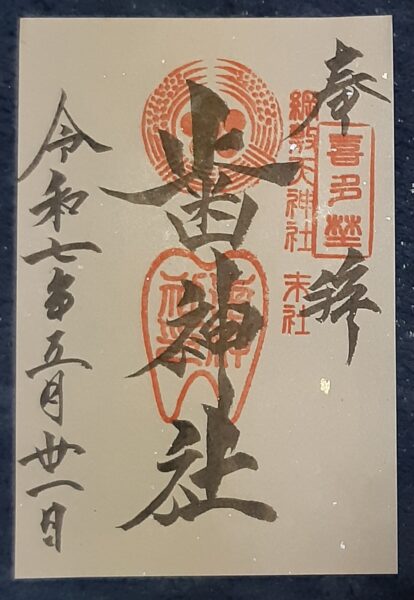 奉拝
喜多埜
綱敷天神社 末社
歯神社
令和七年五月廿一日